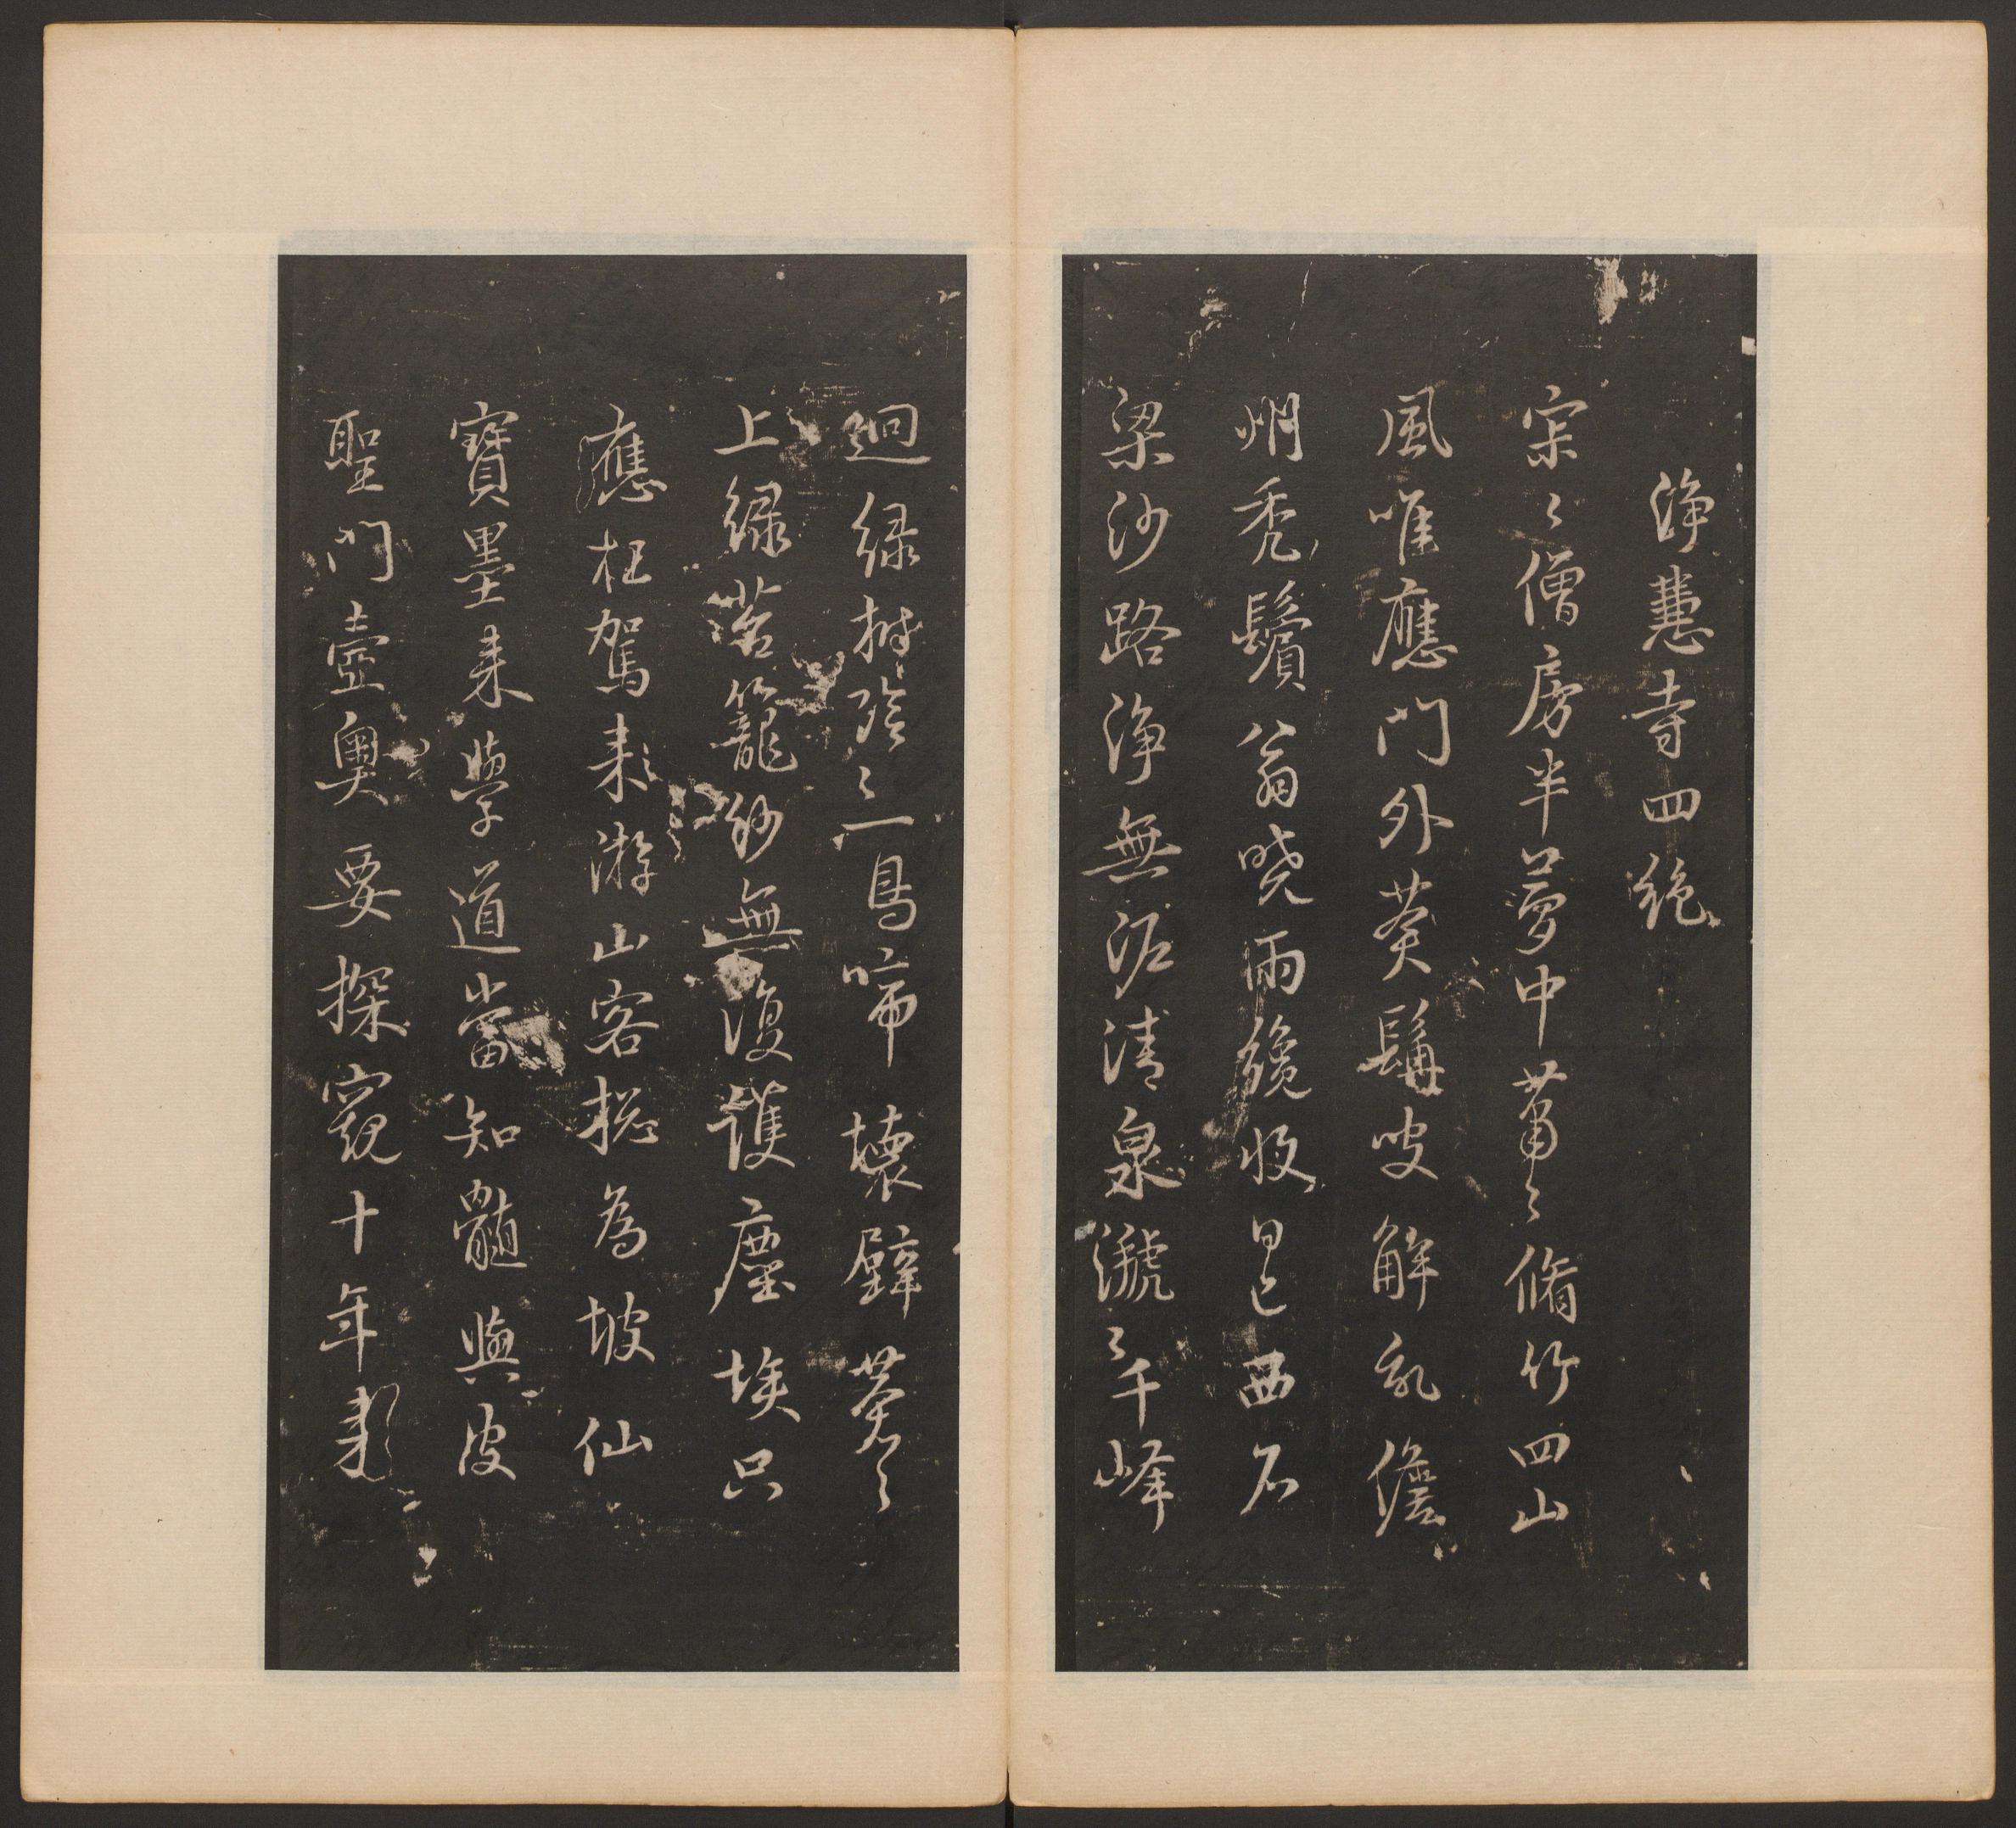 淨慧寺四絶
寂〻僧房半夢中蕭〻脩竹四山
風唯應門外蒼髯叟解亂儋
州禿鬢翁曉雨纔收日已西石
梁沙路淨無泥清泉㶁〻千峰
迴綠樹陰〻一鳥啼壞壁蒼〻
上綠苔籠紗無復護塵埃只
應枉駕來游山客揔為坡仙
寶墨來學道當知髓與皮
聖門壼奧要探窺十年